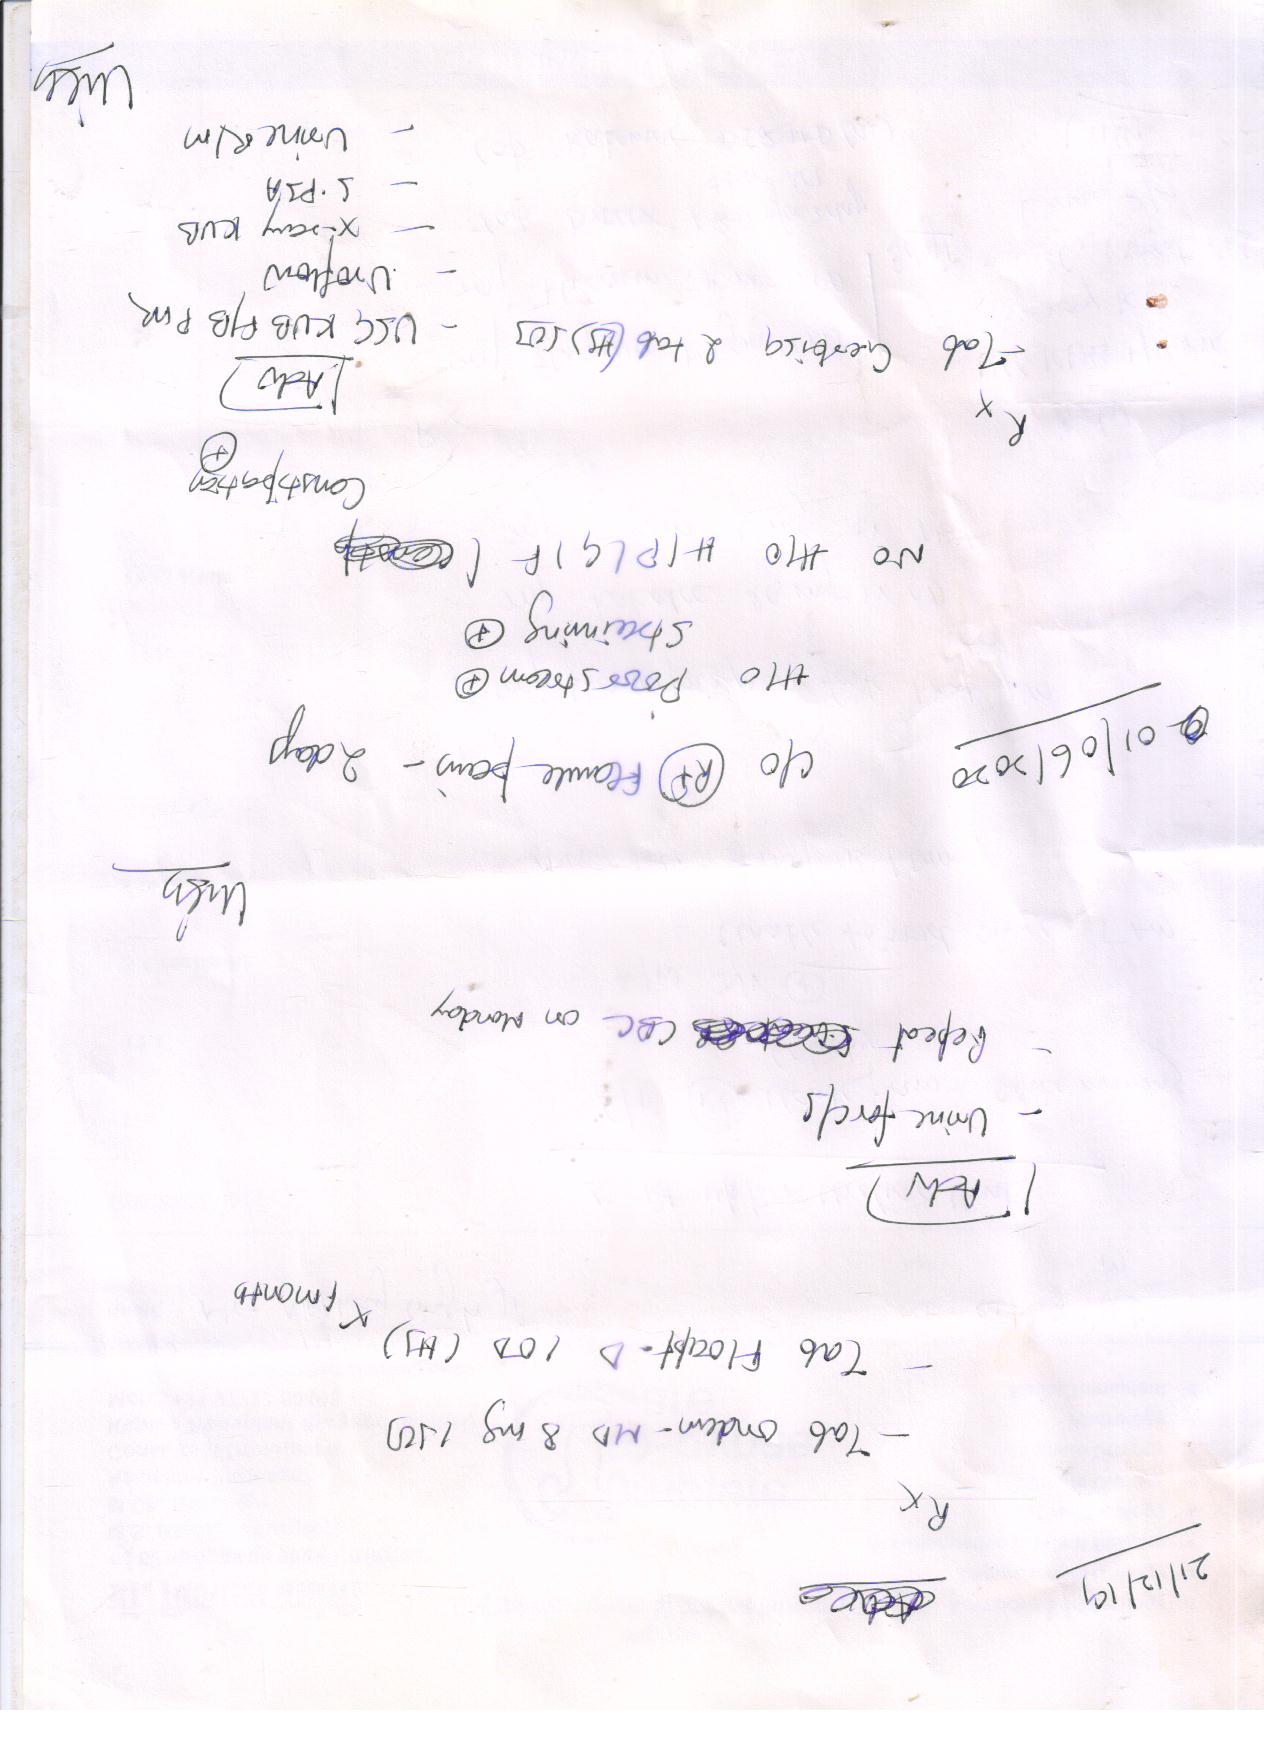 21/12/19
Rx
- Tab ondem-MD 8 mg 1 SOS
- Tab Flocept-D 1 OD (HS)
x 1 month
Adv
- Urine for c/s
- Repeat CBC on Monday
01/06/2020
c/o Rt Flank pain - 2 days
H/O Poor stream +
Straining +
NO H/O H/P/G/F
Constipation +
Rx
Adv
- Tab 2 tab (HS) SOS
- USG KUB P/B PVR
- Uroflow
- X-ray KUB
- S.PSA
- Urine R/m